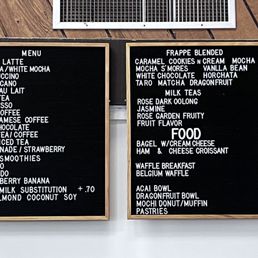 MENU
LATTE
A/WHITE MOCHA
UCCINO
CANO
AU LAIT
TEA
ESSO
OFFEE
AMESE COFFEE
HOCOLATE
TEA/COFFEE
ICED TEA
NADE/STRAWBERRY
SMOOTHIES
O
DO
BERRY BANANA
MILK SUBSTITUTION +.70
LMOND COCONUT SOY
FRAPPE BLENDED
CARAMEL COOKIES N CREAM MOCHA
MOCHA S'MORES VANILLA BEAN
WHITE CHOCOLATE HORCHATA
TARO MATCHA DRAGONFRUIT
MILK TEAS
ROSE DARK OOLONG
JASMINE
ROSE GARDEN FRUITY
FRUIT FLAVOR
FOOD
BAGEL W/CREAM CHEESE
HAM & CHEESE CROISSANT
WAFFLE BREAKFAST
BELGIUM WAFFLE
ACAI BOWL
DRAGONFRUIT BOWL
MOCHI DONUT/MUFFIN
PASTRIES